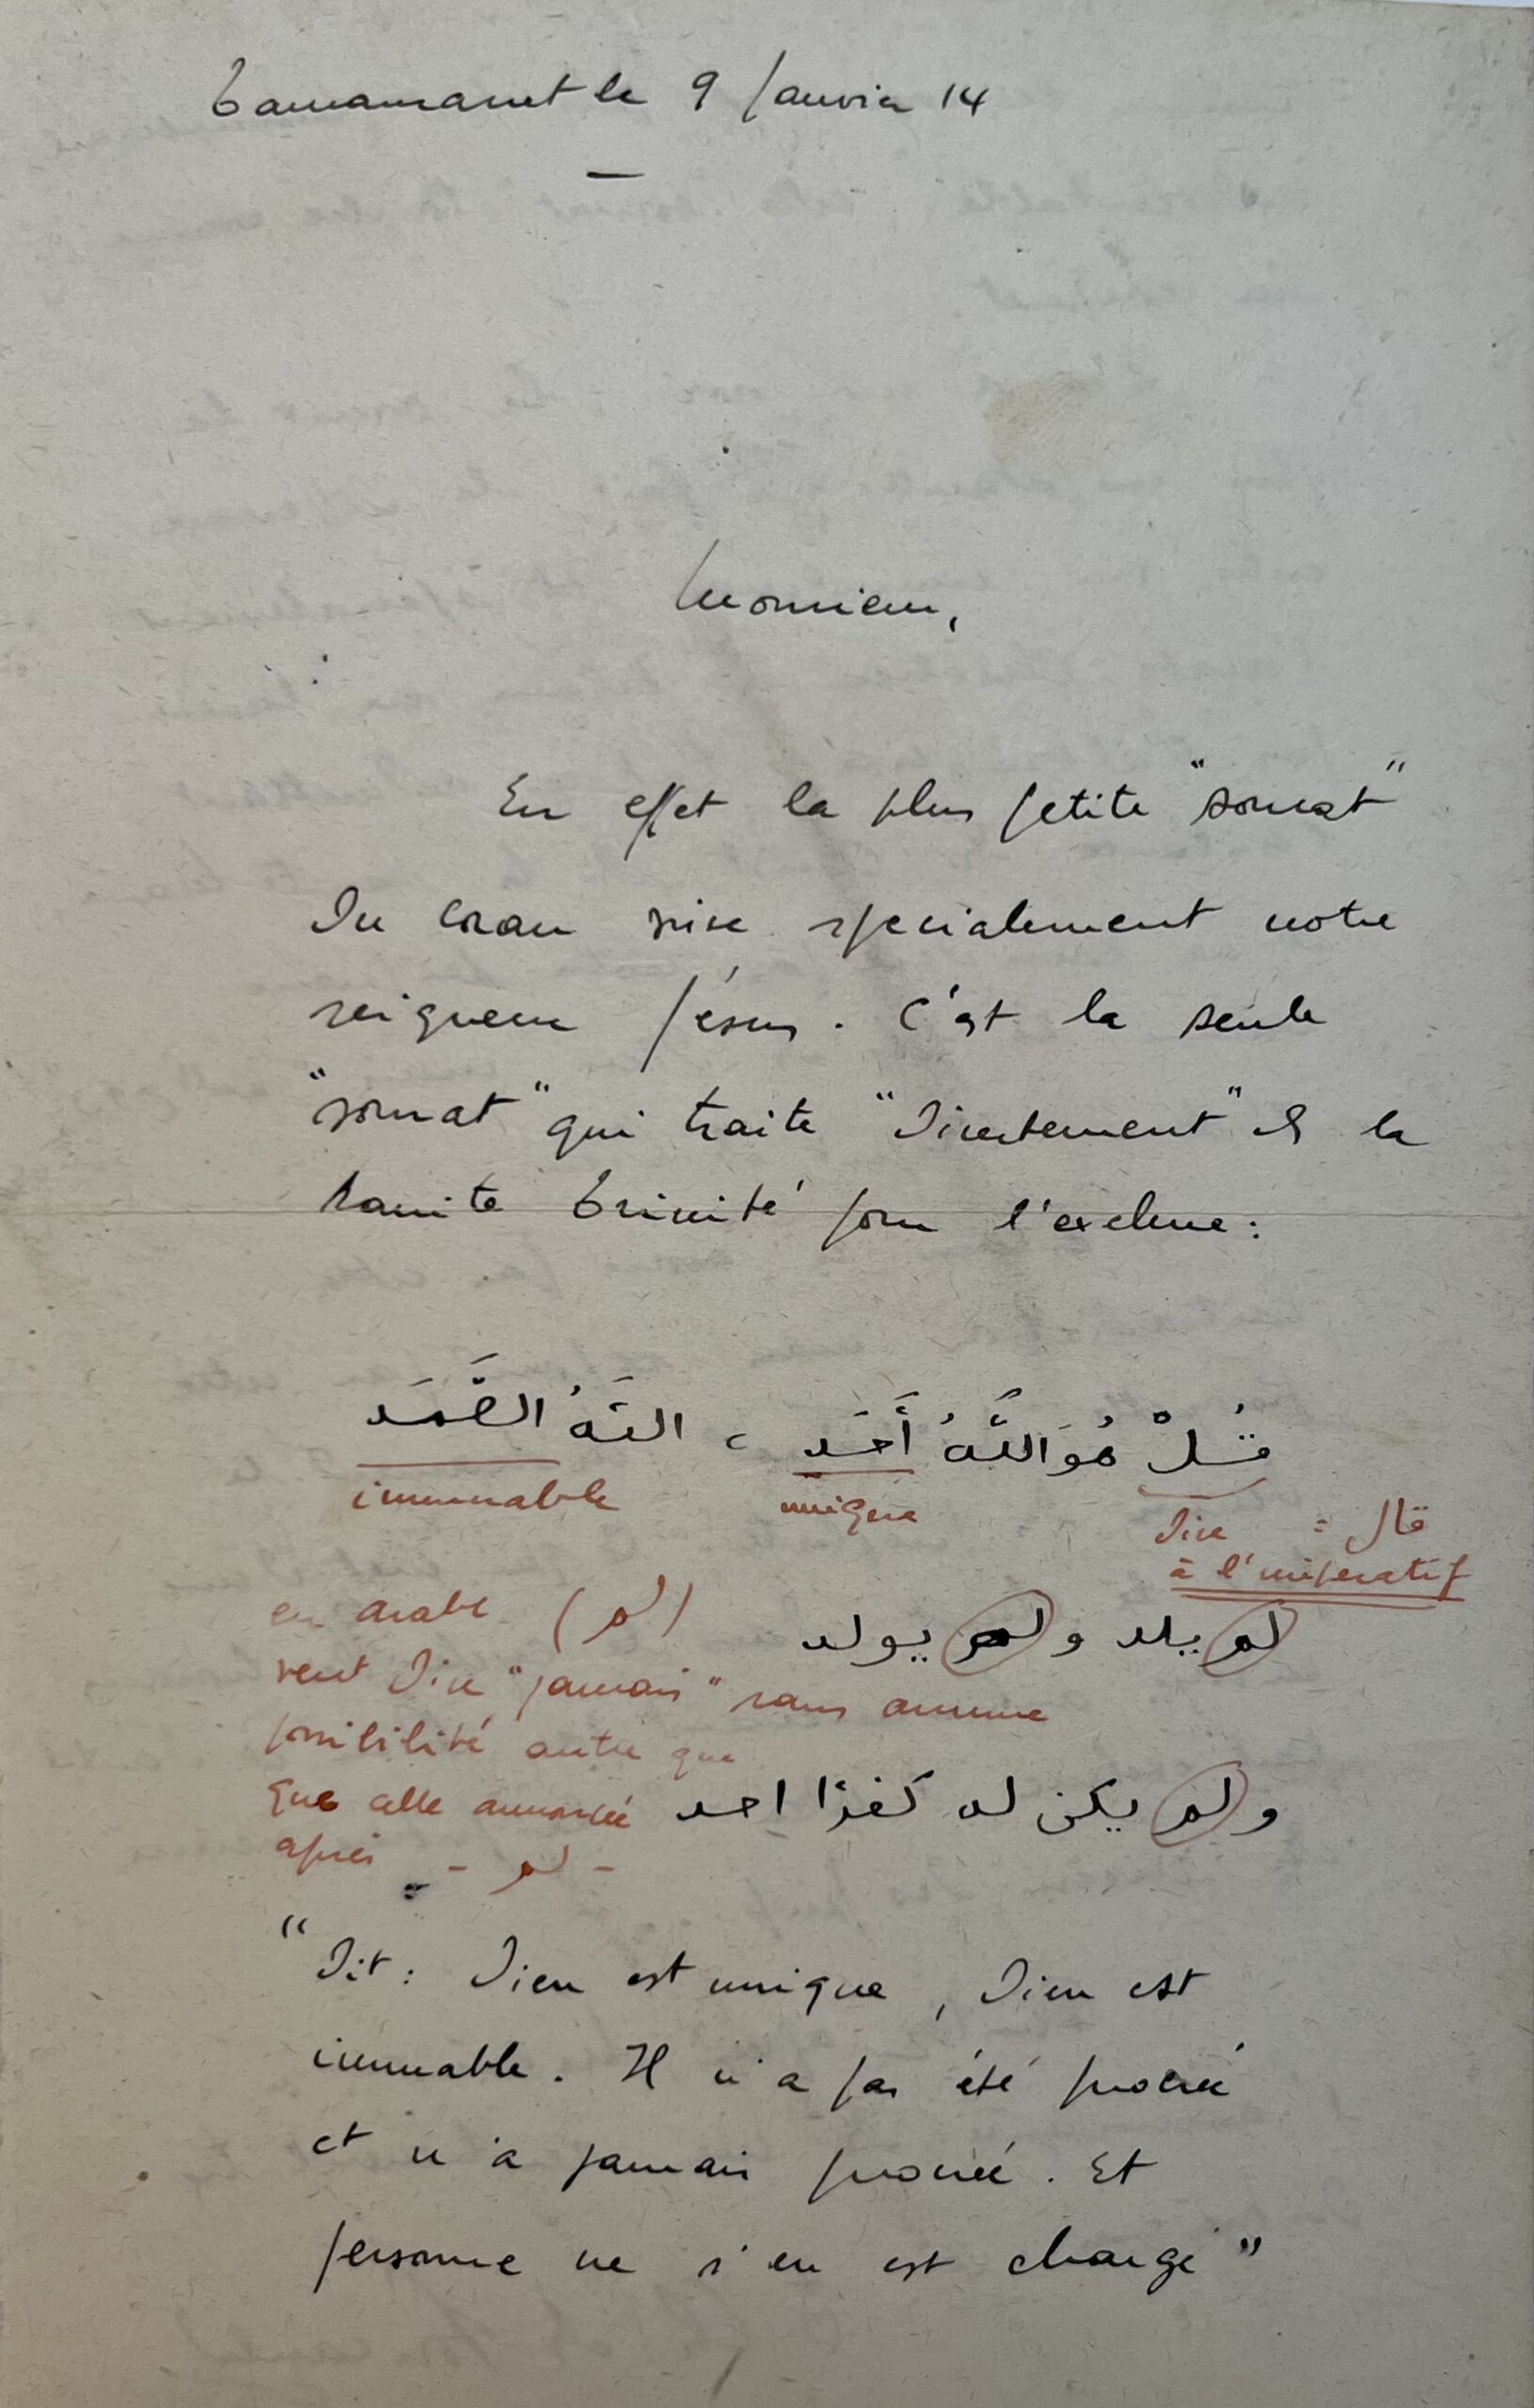 Tamanrasset le 9 Janvier 14
Monsieur,
En effet la plus petite "sourat"
Du coran vise specialement notre
seigneur Jésus. C'est la seule
"sourat" qui traite "Directement" de la
Sainte Trinité pour l'exclure:
قُلْ هُوَ اللَّهُ أَحَد ، اللَّهُ الصَّمَد
immuable
unique
Dire = قال
à l'imperatif
لم يلد و لم يولد
en arabe (لم)
veut Dire "jamais" sans aucune
possibilité autre que
que celle annoncée
و لم يكن له كفؤا احد
après - لم -
"Dit: Dieu est unique, Dieu est
immuable. Il n'a pas été procréé
et n'a jamais procréé. Et
personne ne s'en est chargé"